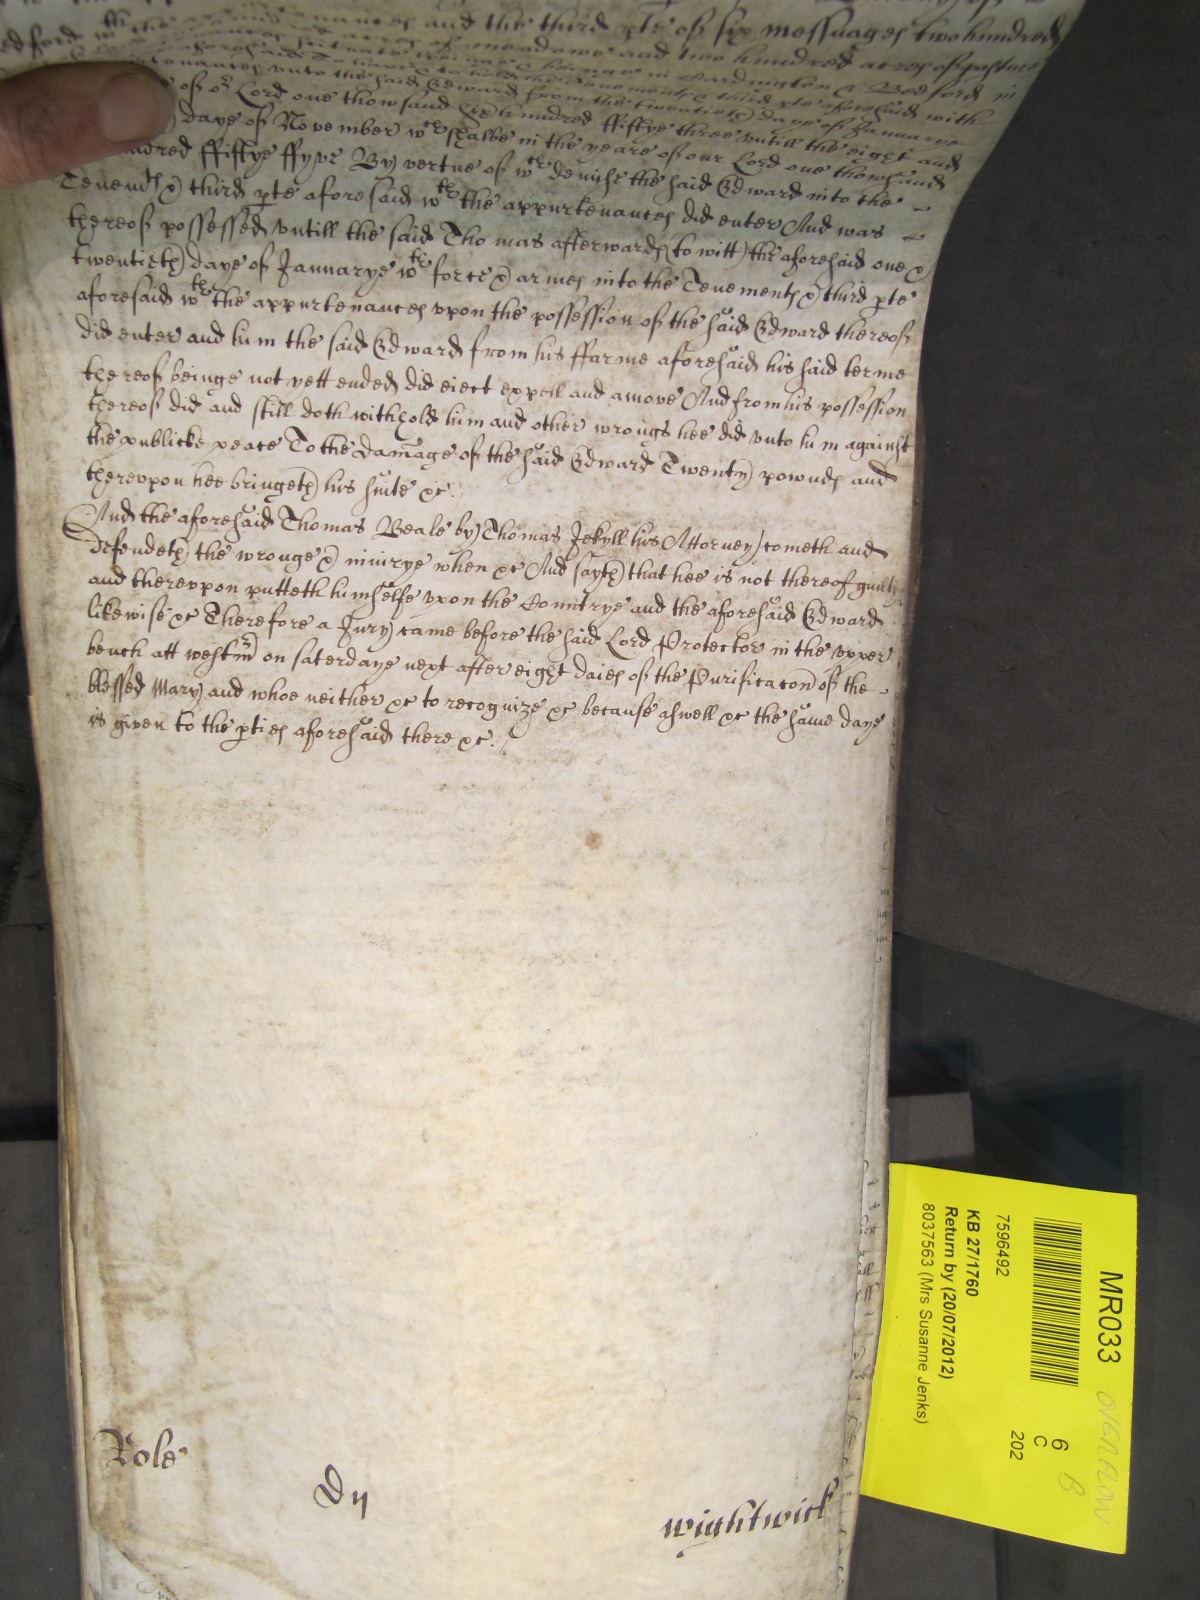 and the third pte of six messuages two hundred
edford wth the acres of meadowe and two hundred acres of pasture
lyinge & beinge in Cardington & Bedford in
aforesaid To have & to hold the tenements & third pte aforesaid with
tenances unto the said Edward from the twentieth daye of Januarye
of or Lord one thowsand six hundred ffiftye three untill the eight and
daye of November wch shalbe in the yeare of our Lord one thowsand
undred ffiftye ffyve By vertue of wch demise the said Edward into the
Tenemts & third pte aforesaid wth the appurtenances did enter And was
thereof possessed untill the said Thomas afterwards (to witt) the aforesaid one &
twentieth daye of Januarye wth force & armes into the Tenements & third pte
aforesaid wth the appurtenances upon the possession of the said Edward thereof
did enter and him the said Edward from his ffarme aforesaid his said terme
thereof beinge not yett ended did eiect expell and amove And from his possession
thereof did and still doth withhold him and other wrongs hee did unto him against
the publicke peace To the Damage of the said Edward Twenty pownds and
thereupon hee bringeth his suite &c.
And the aforesaid Thomas Beale by Thomas Jekyll his Attorney cometh and
defendeth the wronge & iniurye when &c And sayth that hee is not thereof guilty
and thereupon putteth himselfe upon the Countrye and the aforesaid Edward
likewise &c Therefore a Jury came before the said Lord Protector in the upper
bench att westmr on saterdaye next after eight daies of the Purificacon of the
blessed Mary and whoe neither &c to recognize &c because aswell &c the same daye
is given to the pties aforesaid there &c.
Role
Dy
wightwick
MR033
OVERFLOW
6
B
C
202
7596492
KB 27/1760
Return by (20/07/2012)
8037563 (Mrs Susanne Jenks)